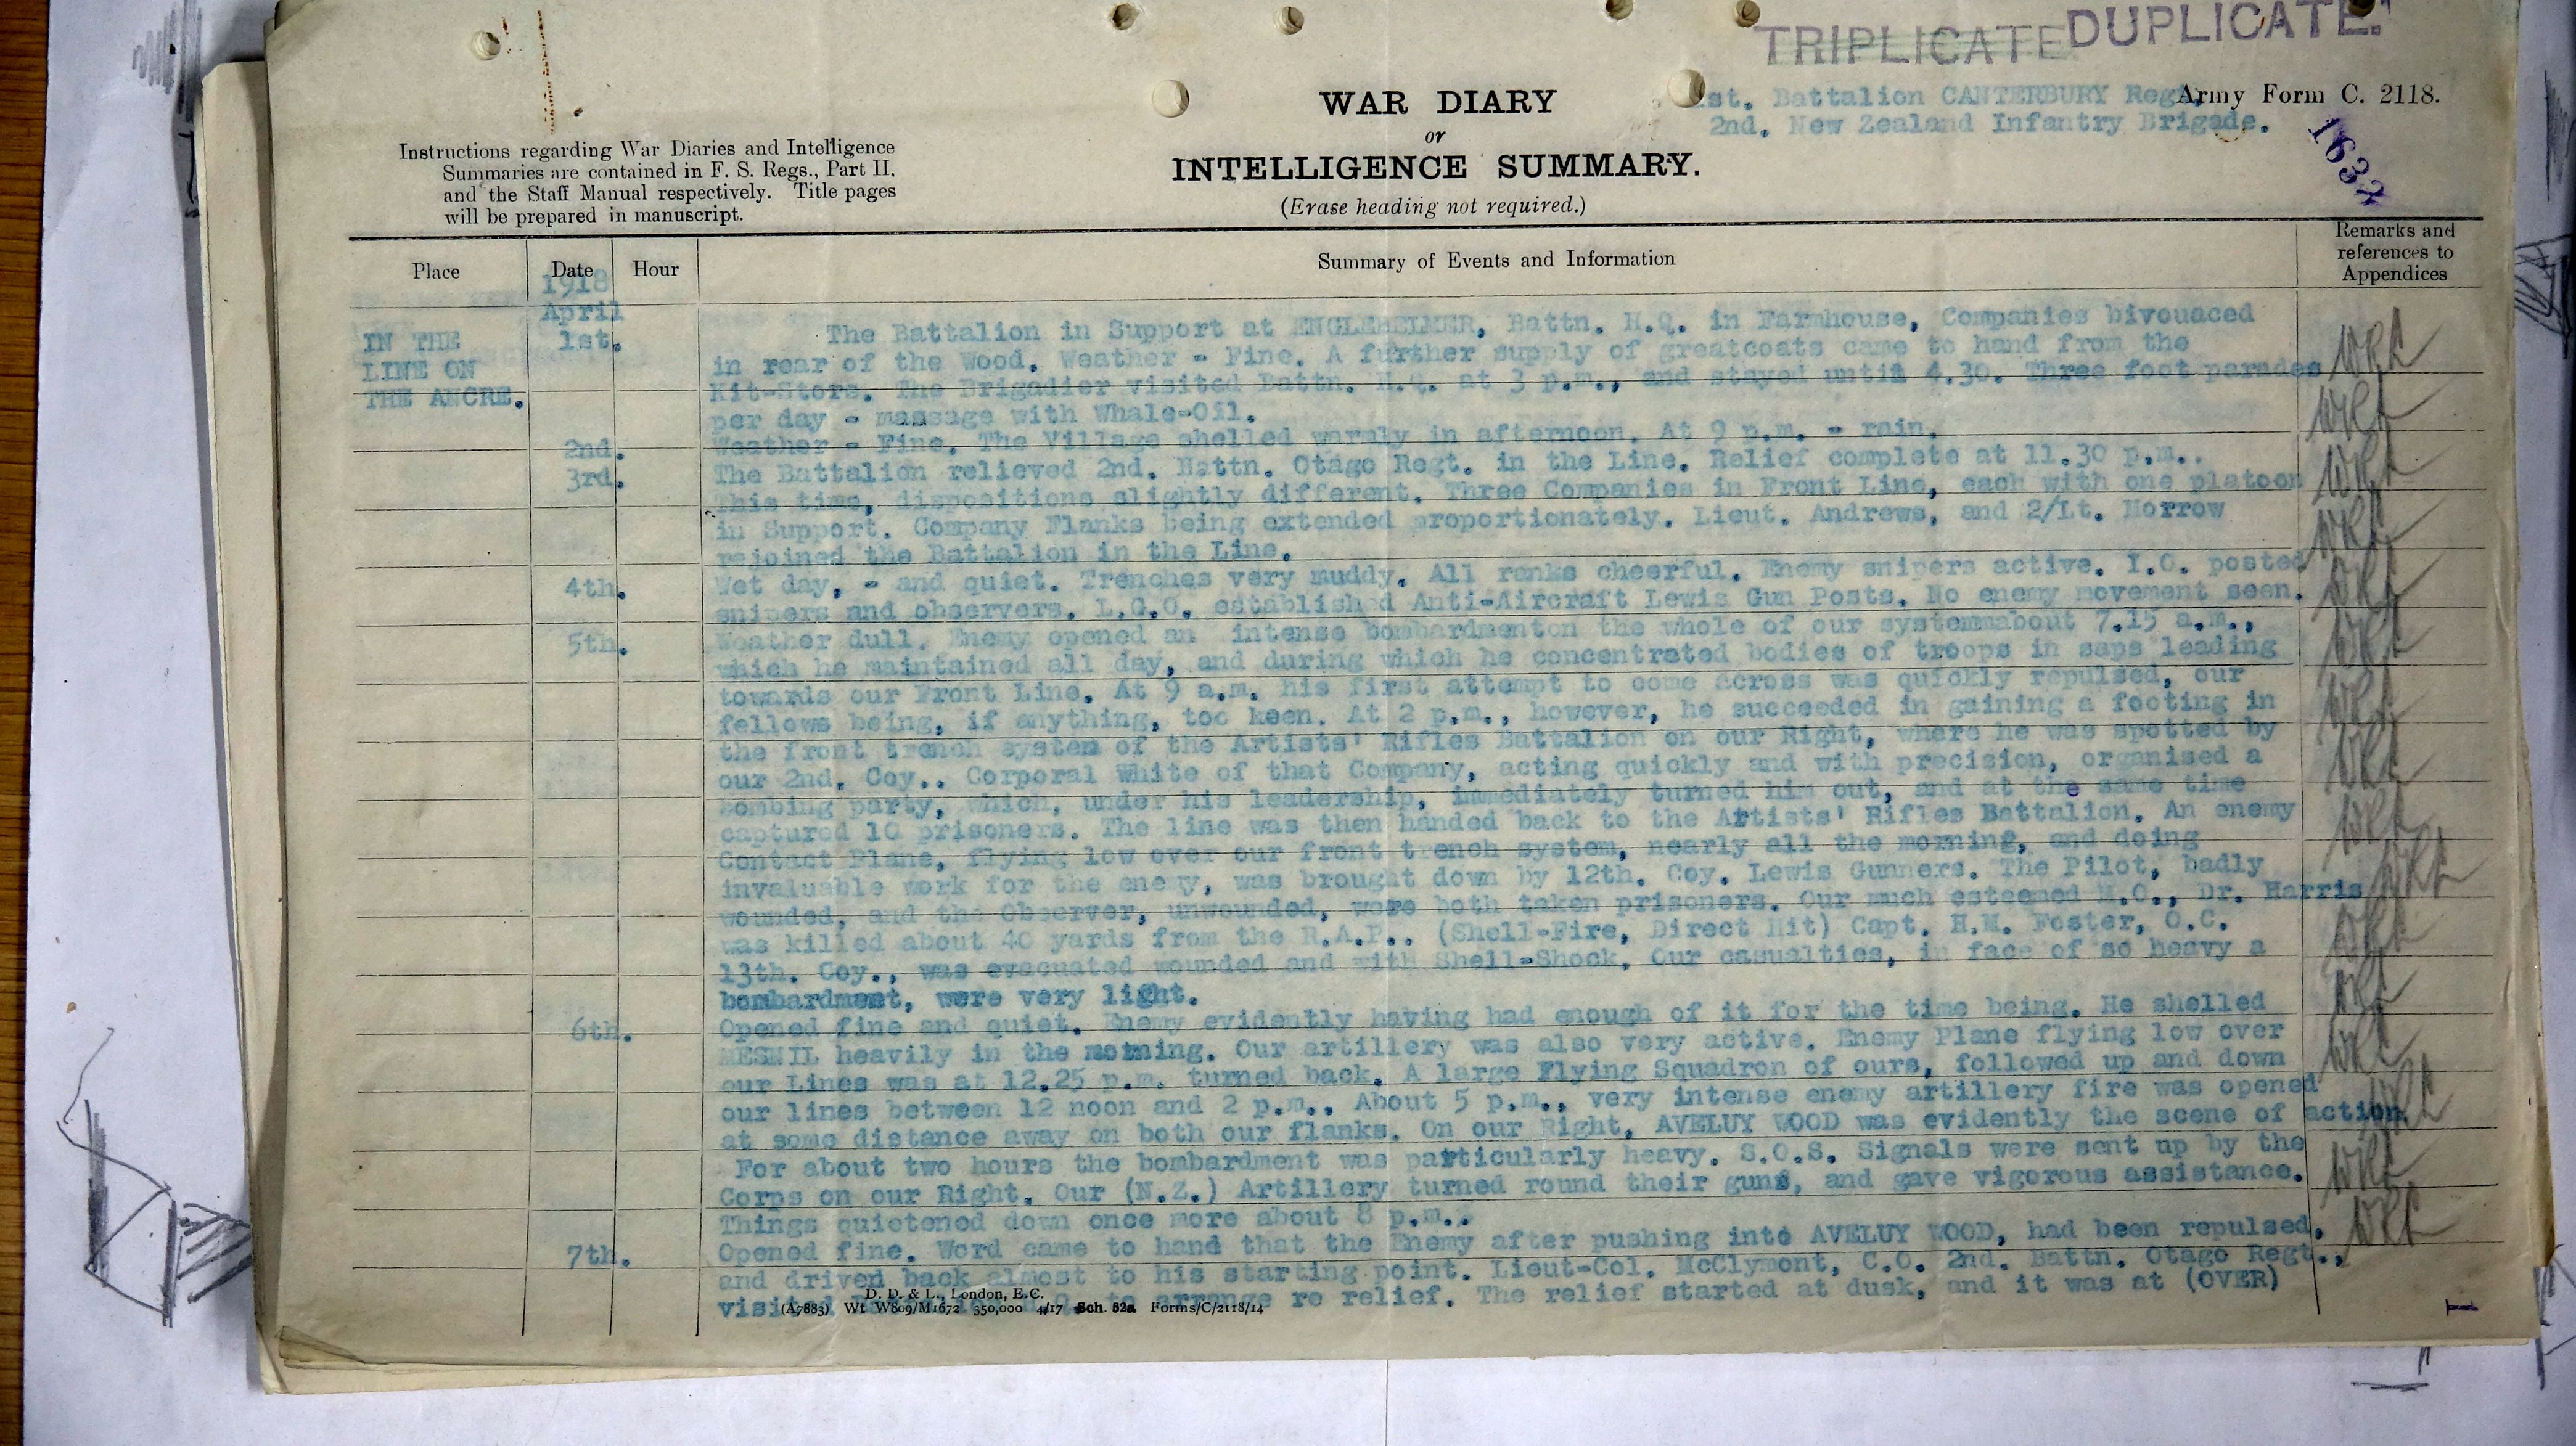 TRIPLICATE DUPLICATE.
WAR DIARY
or
INTELLIGENCE SUMMARY.
(Erase heading not required.)
1st. Battalion CANTERBURY Regt.
2nd. New Zealand Infantry Brigade.
Army Form C. 2118.
Instructions regarding War Diaries and Intelligence
Summaries are contained in F. S. Regs., Part II.
and the Staff Manual respectively. Title pages
will be prepared in manuscript.
Place Date Hour Summary of Events and Information Remarks and
references to
Appendices
1918
April
IN THE
LINE ON
THE ANCRE.
1st. The Battalion in Support at ENGLEBELMER, Battn. H.Q. in Farmhouse, Companies bivouaced
in rear of the Wood. Weather - Fine. A further supply of greatcoats came to hand from the
Kit-Store. The Brigadier visited Battn. H.Q. at 3 p.m., and stayed until 4.30. Three foot parades
per day - massage with Whale-Oil.
2nd. Weather - Fine. The Village shelled warmly in afternoon. At 9 p.m. - rain.
3rd. The Battalion relieved 2nd. Battn. Otago Regt. in the Line. Relief complete at 11.30 p.m..
This time, dispositions slightly different. Three Companies in Front Line, each with one platoon
in Support. Company Flanks being extended proportionately. Lieut. Andrews, and 2/Lt. Morrow
rejoined the Battalion in the Line.
4th. Wet day, - and quiet. Trenches very muddy. All ranks cheerful. Enemy snipers active. I.O. posted
snipers and observers. L.G.O. established Anti-Aircraft Lewis Gun Posts. No enemy movement seen.
5th. Weather dull. Enemy opened an intense bombardmenton the whole of our systemmabout 7.15 a.m.,
which he maintained all day, and during which he concentrated bodies of troops in saps leading
towards our Front Line. At 9 a.m. his first attempt to come across was quickly repulsed, our
fellows being, if anything, too keen. At 2 p.m., however, he succeeded in gaining a footing in
the front trench system of the Artists' Rifles Battalion on our Right, where he was spotted by
our 2nd. Coy.. Corporal White of that Company, acting quickly and with precision, organised a
bombing party, which, under his leadership, immediately turned him out, and at the same time
captured 10 prisoners. The line was then handed back to the Artists' Rifles Battalion. An enemy
Contact Plane, flying low over our front trench system, nearly all the morning, and doing
invaluable work for the enemy, was brought down by 12th. Coy. Lewis Gunners. The Pilot, badly
wounded, and the Observer, unwounded, were both taken prisoners. Our much esteemed M.O., Dr. Harris
was killed about 40 yards from the R.A.P.. (Shell-Fire, Direct Hit) Capt. H.M. Foster, O.C.
13th. Coy., was evacuated wounded and with Shell-Shock. Our casualties, in face of so heavy a
bombardment, were very light.
6th. Opened fine and quiet. Enemy evidently having had enough of it for the time being. He shelled
MESNIL heavily in the morning. Our artillery was also very active. Enemy Plane flying low over
our Lines was at 12.25 p.m. turned back. A large Flying Squadron of ours, followed up and down
our lines between 12 noon and 2 p.m.. About 5 p.m., very intense enemy artillery fire was opened
at some distance away on both our flanks. On our Right, AVELUY WOOD was evidently the scene of action.
For about two hours the bombardment was particularly heavy. S.O.S. Signals were sent up by the
Corps on our Right. Our (N.Z.) Artillery turned round their guns, and gave vigorous assistance.
Things quietened down once more about 8 p.m..
7th. Opened fine. Word came to hand that the Enemy after pushing into AVELUY WOOD, had been repulsed,
and driven back almost to his starting point. Lieut-Col. McClymont, C.O. 2nd. Battn. Otago Regt.,
visited to arrange re relief. The relief started at dusk, and it was at (OVER)
D. D. & L., London, E.C.
(A7883) Wt W809/M1672 350,000 4/17 Sch. 52a Forms/C/2118/14